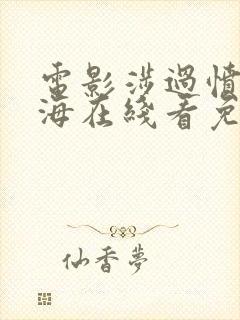 電影涉過憤
海在綫看免
仙香夢